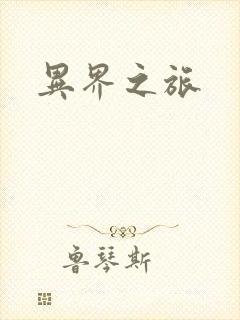 異界之旅
魯琴斯